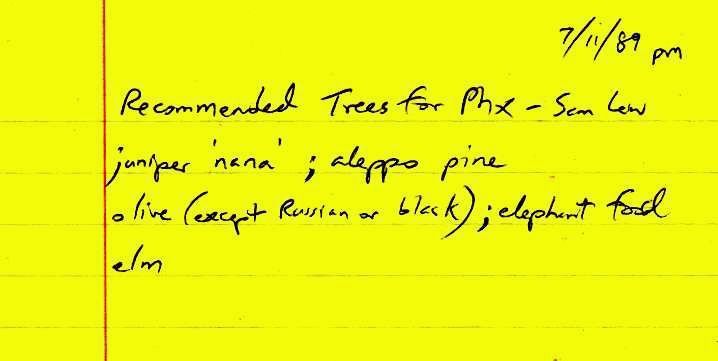 7/11/89 pm
Recommended Trees for Phx - Sam Lew
juniper 'nana' ; aleppo pine
olive (except Russian or black) ; elephant food
elm